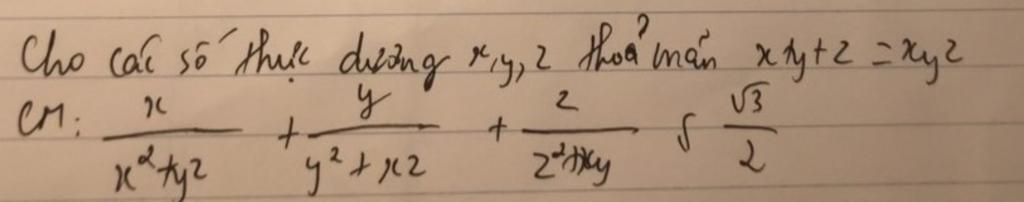 Cho các số thực dương x, y, z thoả mãn x+y+z = xyz
CM: x/(x²+yz) + y/(y²+xz) + z/(z²+xy) ≤ √3/2